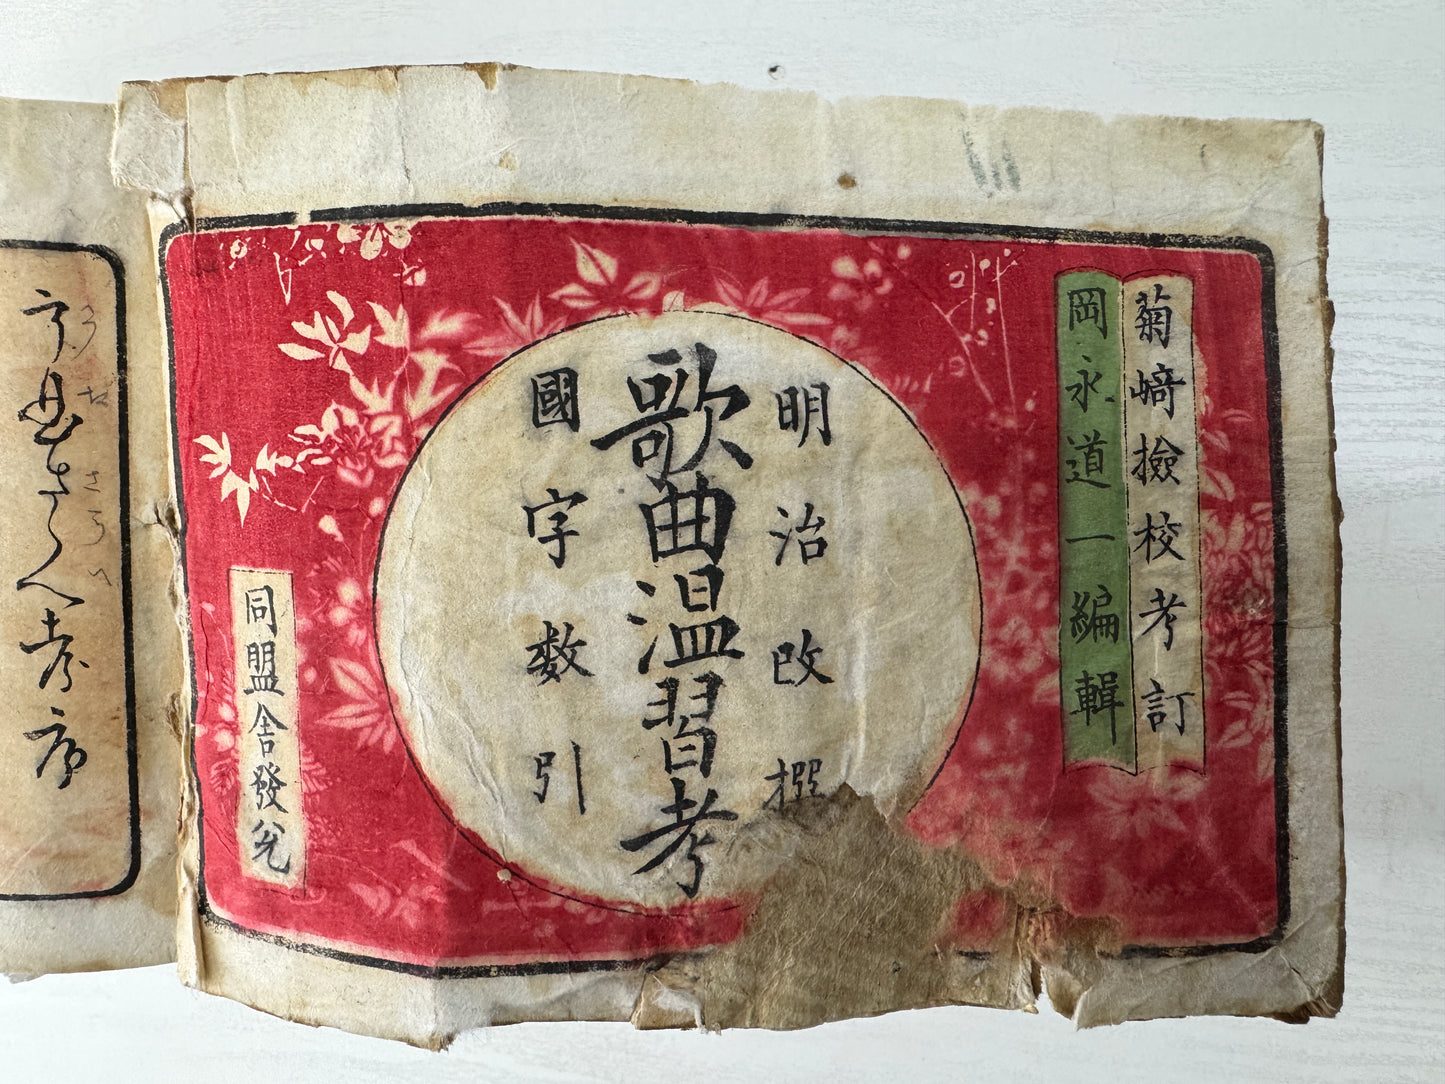 菊﨑撿校考訂
岡永道一編輯
明治改撰
歌曲温習考
國字数引
同盟舎發兌